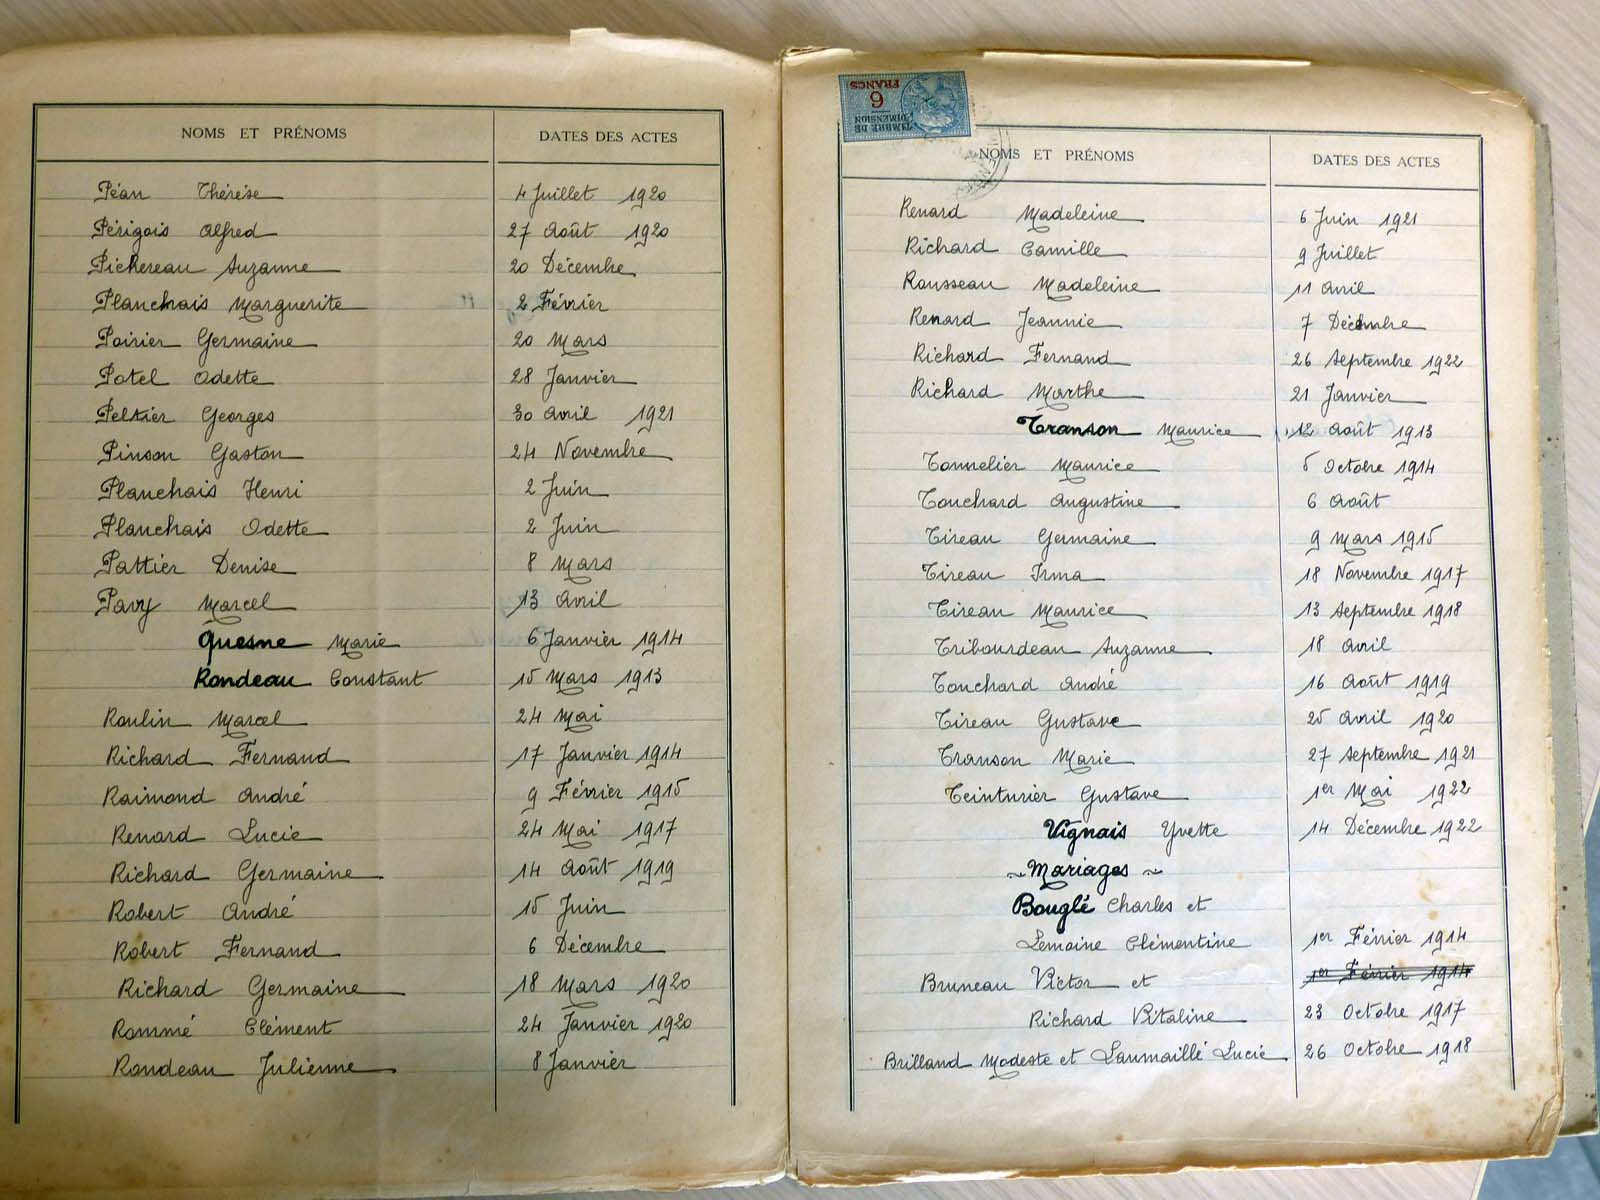 NOMS ET PRÉNOMS DATES DES ACTES
Péan Thérèse 4 Juillet 1920
Périgois Alfred 27 Août 1920
Pichereau Suzanne 20 Décembre
Planchais Marguerite 2 Février
Poirier Germaine 20 Mars
Potel Odette 28 Janvier
Peltier Georges 30 Avril 1921
Pinson Gaston 24 Novembre
Planchais Henri 2 Juin
Planchais Odette 2 Juin
Pattier Denise 8 Mars
Pavy Marcel 13 Avril
Quesne Marie 6 Janvier 1914
Rondeau Constant 15 Mars 1913
Roulin Marcel 24 Mai
Richard Fernand 17 Janvier 1914
Raimond André 9 Février 1915
Renard Lucie 24 Mai 1917
Richard Germaine 14 Août 1919
Robert André 15 Juin
Robert Fernand 6 Décembre
Richard Germaine 18 Mars 1920
Rommé Clément 24 Janvier 1920
Rondeau Julienne 8 Janvier
TIMBRE DE
DIMENSION
6
FRANCS
NOMS ET PRÉNOMS DATES DES ACTES
Renard Madeleine 6 Juin 1921
Richard Camille 9 Juillet
Rousseau Madeleine 11 Avril
Renard Jeannie 7 Décembre
Richard Fernand 26 Septembre 1922
Richard Marthe 21 Janvier
Transon Maurice 12 Août 1913
Tonnelier Maurice 5 Octobre 1914
Touchard Augustine 6 Août
Tireau Germaine 9 Mars 1915
Tireau Irma 18 Novembre 1917
Tireau Maurice 13 Septembre 1918
Tribourdeau Suzanne 18 Avril
Touchard André 16 Août 1919
Tireau Gustave 25 Avril 1920
Transon Marie 27 Septembre 1921
Teinturier Gustave 1er Mai 1922
Vignais Yvette 14 Décembre 1922
~ Mariages ~
Bouglé Charles et
Lemoine Clémentine 1er Février 1914
Bruneau Victor et 1er Février 1914
Richard Vitaline 23 Octobre 1917
Brilland Modeste et Laumaillé Lucie 26 Octobre 1918